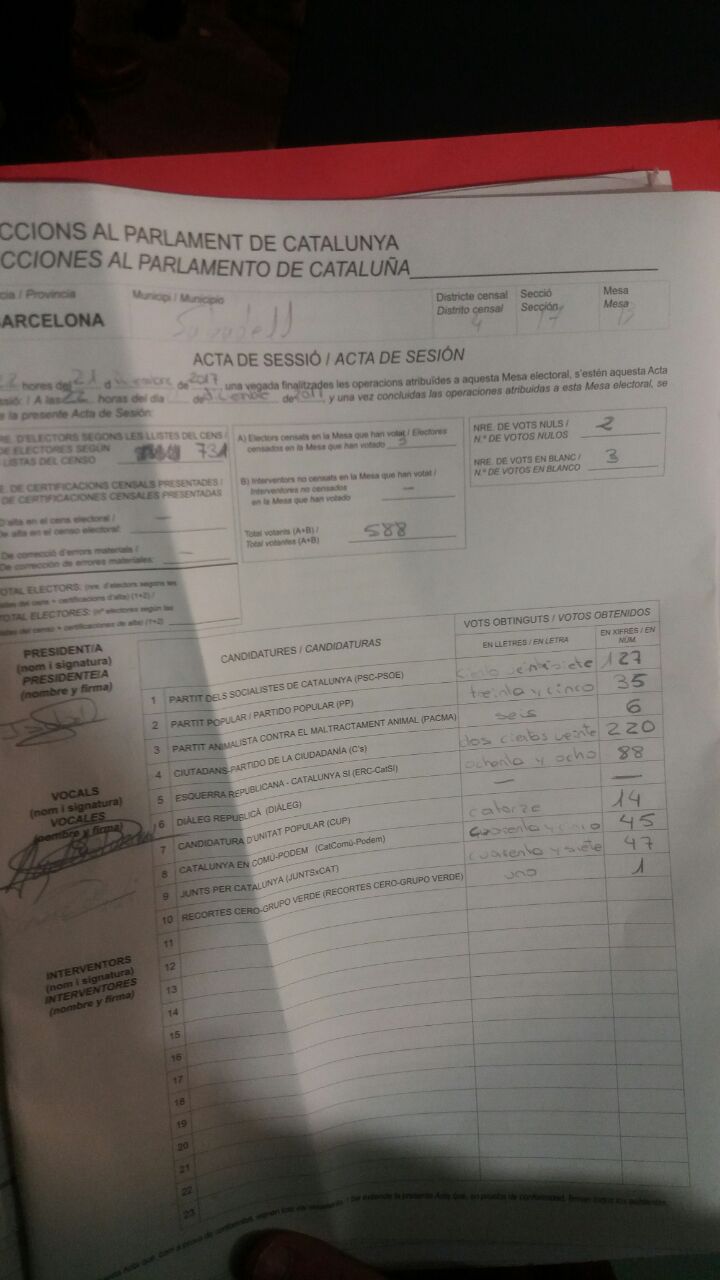 CCIONS AL PARLAMENT DE CATALUNYA
CCIONES AL PARLAMENTO DE CATALUÑA
cia / Provincia
ARCELONA
Municipi / Municipio
Sabadell
Districte censal
Distrito censal
4
Secció
Sección
17
Mesa
Mesa
ACTA DE SESSIÓ / ACTA DE SESIÓN
22 hores del 21 d de 2017 una vegada finalitzades les operacions atribuïdes a aquesta Mesa electoral, s'estén aquesta Acta
ssió: / A las 22 horas del día de diciembre de 2017 y una vez concluidas las operaciones atribuidas a esta Mesa electoral, se
la presente Acta de Sesión:
RE. D'ELECTORS SEGONS LES LLISTES DEL CENS /
DE ELECTORES SEGÚN
LISTAS DEL CENSO 731
E. DE CERTIFICACIONS CENSALS PRESENTADES /
DE CERTIFICACIONES CENSALES PRESENTADAS
D'alta en el cens electoral /
De alta en el censo electoral: —
De correcció d'errors materials /
De corrección de errores materiales: —
OTAL ELECTORS: (nre. d'electors segons les
istes del cens + certificacions d'alta) (1+2) /
TOTAL ELECTORES: (nº electores según las
istas del censo + certificaciones de alta) (1+2)
A) Electors censats en la Mesa que han votat / Electores
censados en la Mesa que han votado
B) Interventors no censats en la Mesa que han votat /
Interventores no censados
en la Mesa que han votado —
Total votants (A+B) /
Total votantes (A+B) 588
NRE. DE VOTS NULS /
N.º DE VOTOS NULOS 2
NRE. DE VOTS EN BLANC /
N.º DE VOTOS EN BLANCO 3
PRESIDENT/A
(nom i signatura)
PRESIDENTE/A
(nombre y firma)
VOCALS
(nom i signatura)
VOCALES
(nombre y firma)
INTERVENTORS
(nom i signatura)
INTERVENTORES
(nombre y firma)
CANDIDATURES / CANDIDATURAS
VOTS OBTINGUTS / VOTOS OBTENIDOS
EN LLETRES / EN LETRA
EN XIFRES / EN NÚM.
1 PARTIT DELS SOCIALISTES DE CATALUNYA (PSC-PSOE) ciento veintisiete 127
2 PARTIT POPULAR / PARTIDO POPULAR (PP) treinta y cinco 35
3 PARTIT ANIMALISTA CONTRA EL MALTRACTAMENT ANIMAL (PACMA) seis 6
4 CIUTADANS-PARTIDO DE LA CIUDADANÍA (C's) dos cientos veinte 220
5 ESQUERRA REPUBLICANA - CATALUNYA SÍ (ERC-CatSí) ochenta y ocho 88
6 DIÀLEG REPUBLICÀ (DIÀLEG) — —
7 CANDIDATURA D'UNITAT POPULAR (CUP) catorze 14
8 CATALUNYA EN COMÚ-PODEM (CatComú-Podem) cuarenta y cinco 45
9 JUNTS PER CATALUNYA (JUNTSxCAT) cuarenta y siete 47
10 RECORTES CERO-GRUPO VERDE (RECORTES CERO-GRUPO VERDE) uno 1
11
12
13
14
15
16
17
18
19
20
21
22
23